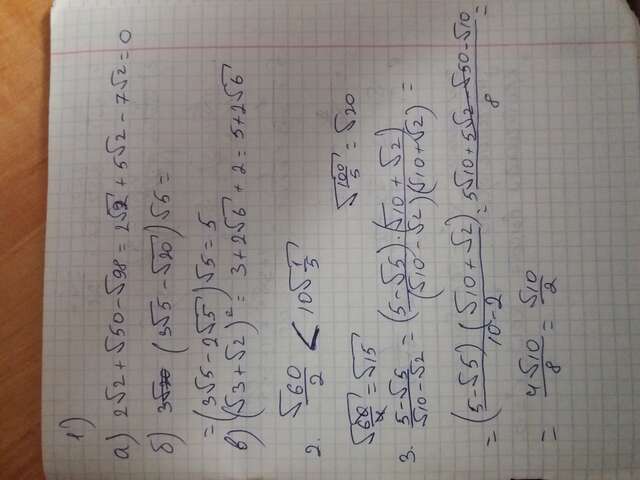 1)
а) 2√2 + √50 - √98 = 2√2 + 5√2 - 7√2 = 0
б) (3√5 - √20) √5 =
= (3√5 - 2√5) √5 = 5
в) (√3 + √2)² = 3 + 2√6 + 2 = 5 + 2√6
2. √60/2 < 10√1/5
√60/4 = √15 √100/5 = √20
3. 5-√5/√10-√2 = (5-√5)·(√10+√2)/(√10-√2)(√10+√2) =
= (5-√5)(√10+√2)/10-2 = 5√10+5√2-√50-√10/8 =
= 4√10/8 = √10/2